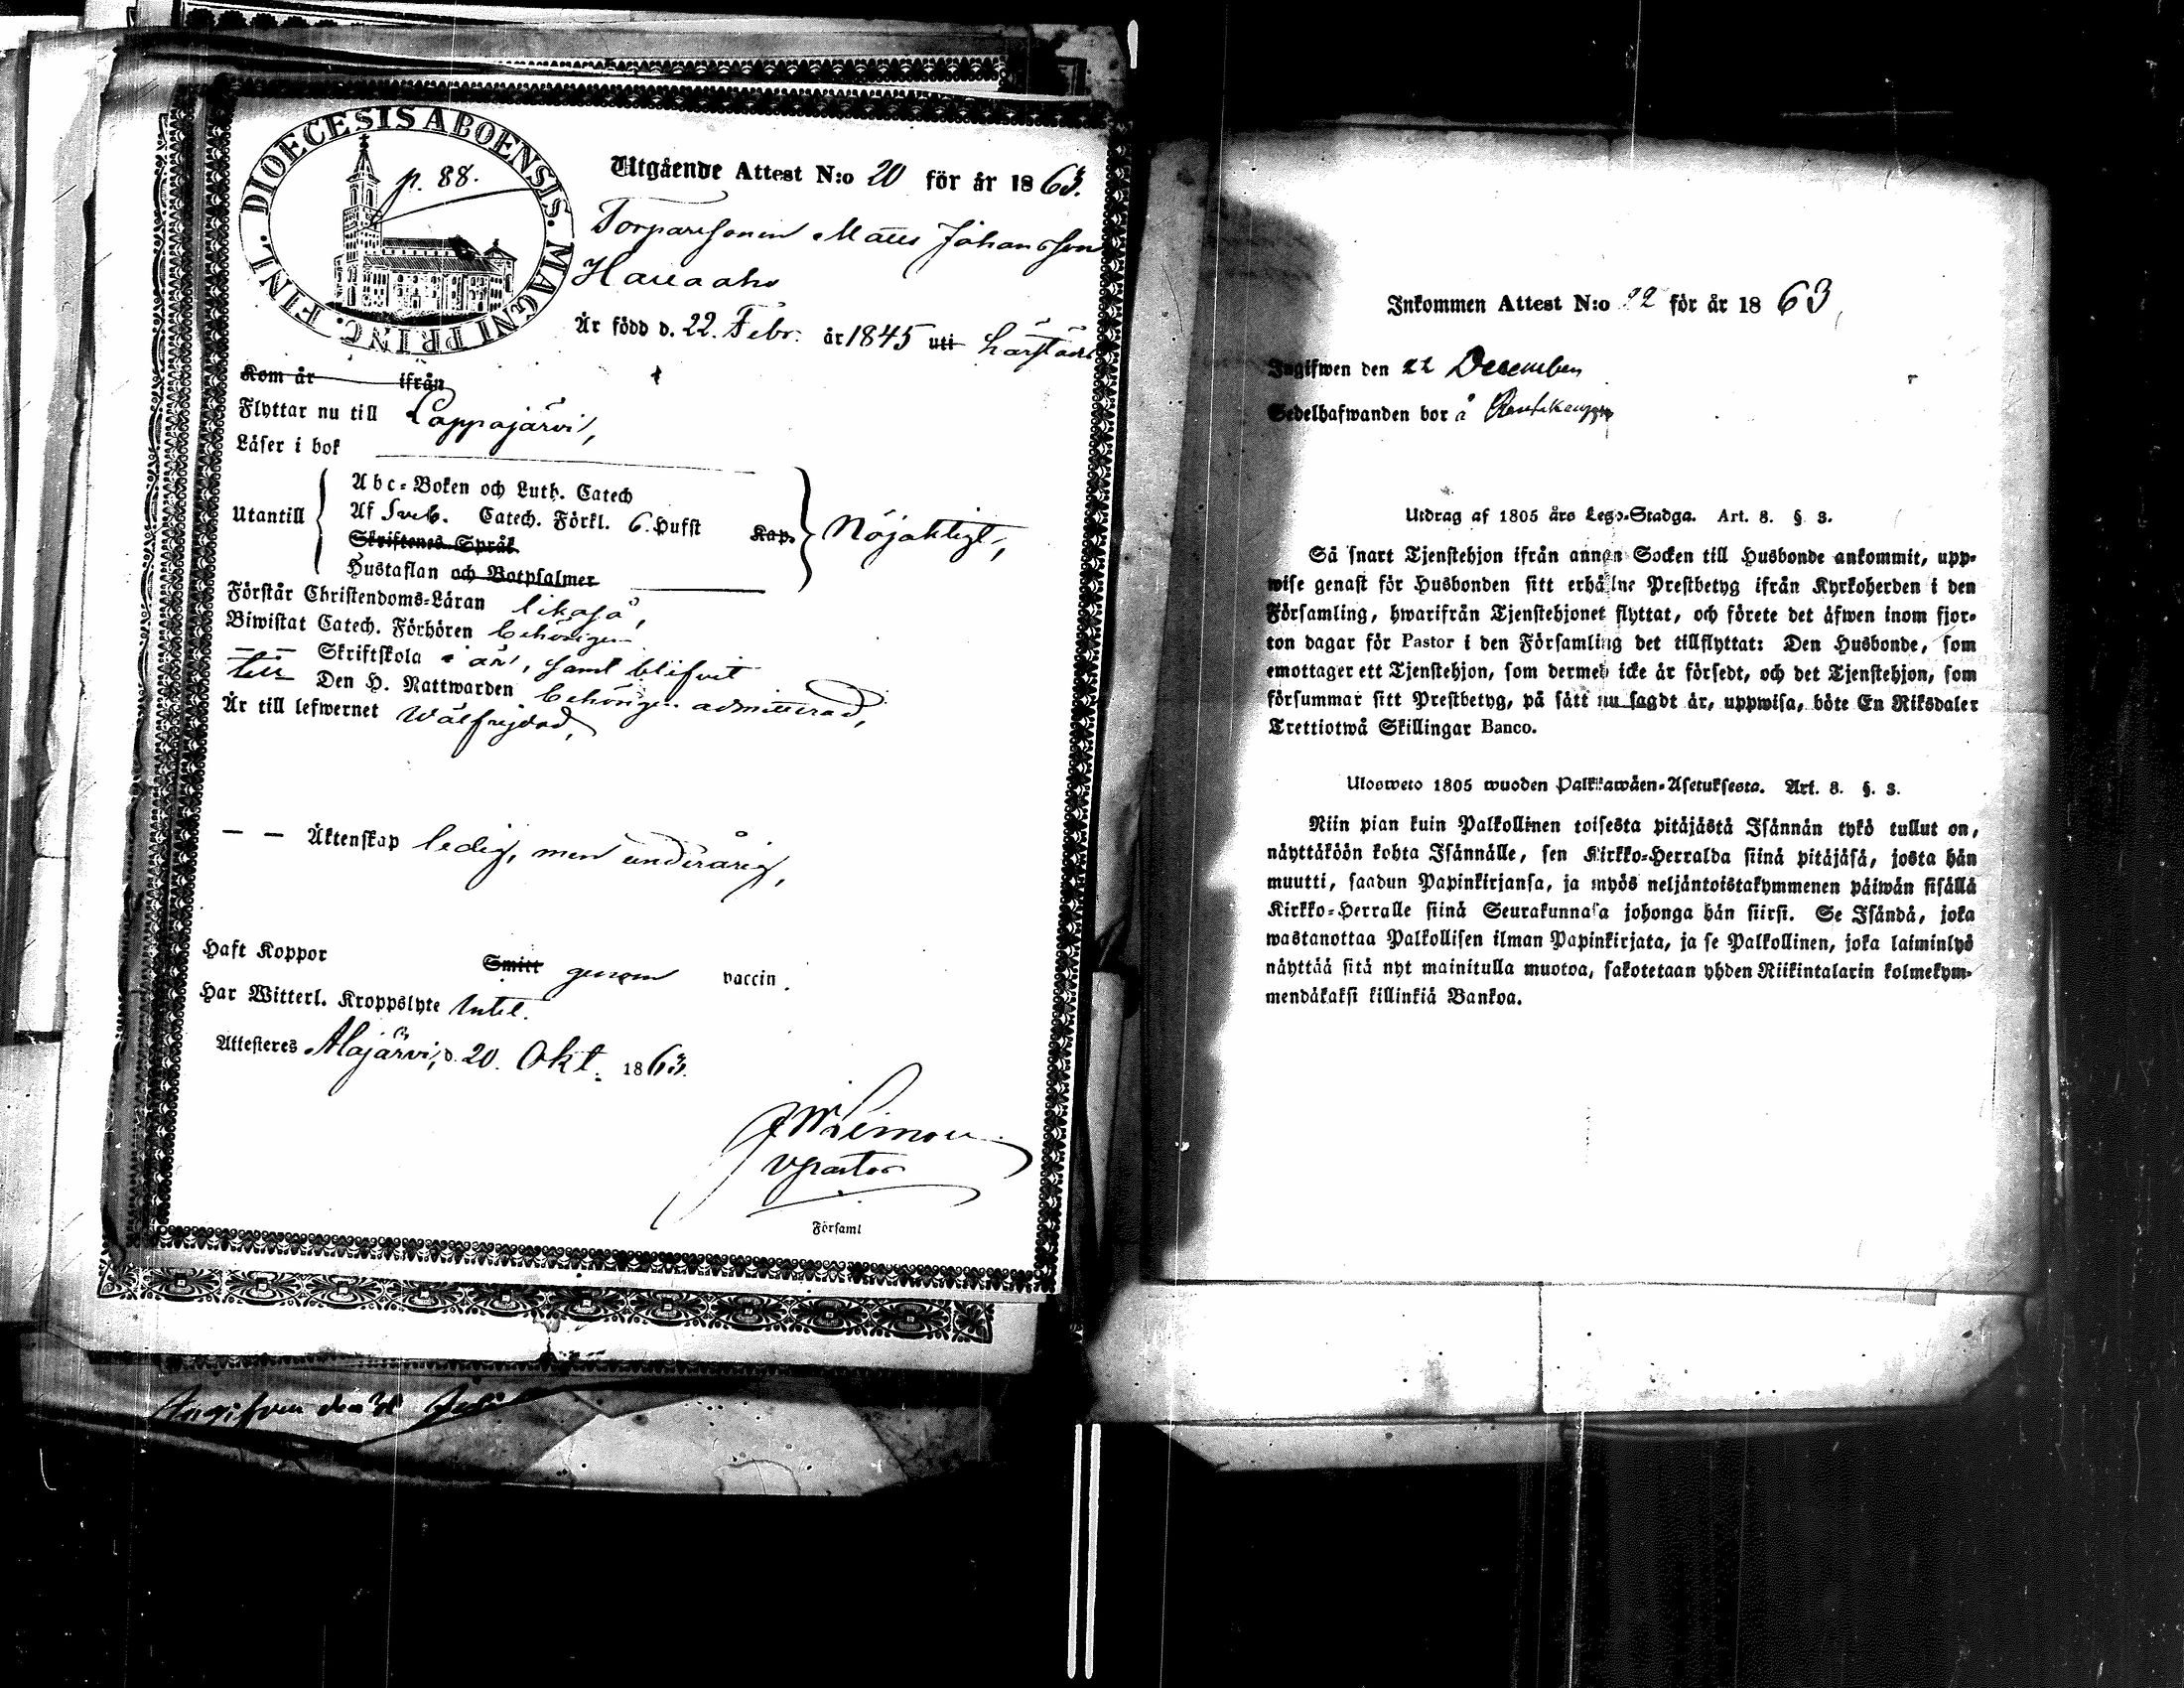 DIOECESIS ABOENSIS. MAGNI PRINC. FINL.
p. 88.
Utgående Attest N:o 20 för år 1863.
Torparesonen Matts Johansson
Är född d. 22. Febr. år 1845 uti härstädes
Kom år ifrån
Flyttar nu till Lappajärvi,
Läser i bok
Utantill
Abc-Boken och Luth. Catech
Af Sveb. Catech. Förkl. 6. Hufst Kap.
Skriftenes Språk
Hustaflan och Botpsalmer
Nöjaktigt,
Förstår Christendoms-Läran likaså,
Biwistat Catech. Förhören behörigen
— — Skriftskola i år, samt blifvit
till Den H. Nattwarden behörigen admitterad,
Är till lefwernet Wälfrejdad,
— — Äktenskap ledig, men underårig,
Haft Koppor Smitt genom vaccin.
Har Witterl. Kroppslyte intet.
Attesteras Alajärvi, d. 20. Okt. 1863.
vpastor
Församl
Ingifven den Juli
Inkommen Attest N:o 22 för år 1863,
Ingifwen den 22 December
Sedelhafwanden bor å
Utdrag af 1805 års Lego-Stadga. Art. 8. § 3.
Så snart Tjenstehjon ifrån annan Socken till Husbonde ankommit, upp-
wise genast för Husbonden sitt erhållne Prestbetyg ifrån Kyrkoherden i den
Församling, hwarifrån Tjenstehjonet flyttat, och förete det äfwen inom fjor-
ton dagar för Pastor i den Församling det tillflyttat: Den Husbonde, som
emottager ett Tjenstehjon, som dermed icke är försedt, och det Tjenstehjon, som
försummar sitt Prestbetyg, på sätt nu sagdt är, uppwisa, böte En Riksdaler
Trettiotwå Skillingar Banco.
Ulosweto 1805 wuoden Palkkawäen-Asetuksesta. Art. 8. §. 3.
Niin pian kuin Palkollinen toisesta pitäjästä Isännän tykö tullut on,
näyttäköön kohta Isännälle, sen Kirkko-Herralda siinä pitäjäsä, josta hän
muutti, saadun Papinkirjansa, ja myös neljäntoistakymmenen päiwän sisällä
Kirkko-Herralle siinä Seurakunnasa johonga hän siirsi. Se Isändä, joka
wastanottaa Palkollisen ilman Papinkirjata, ja se Palkollinen, joka laiminlyö
näyttää sitä nyt mainitulla muotoa, sakotetaan yhden Riikintalarin kolmekym-
mendäkaksi killinkiä Bankoa.